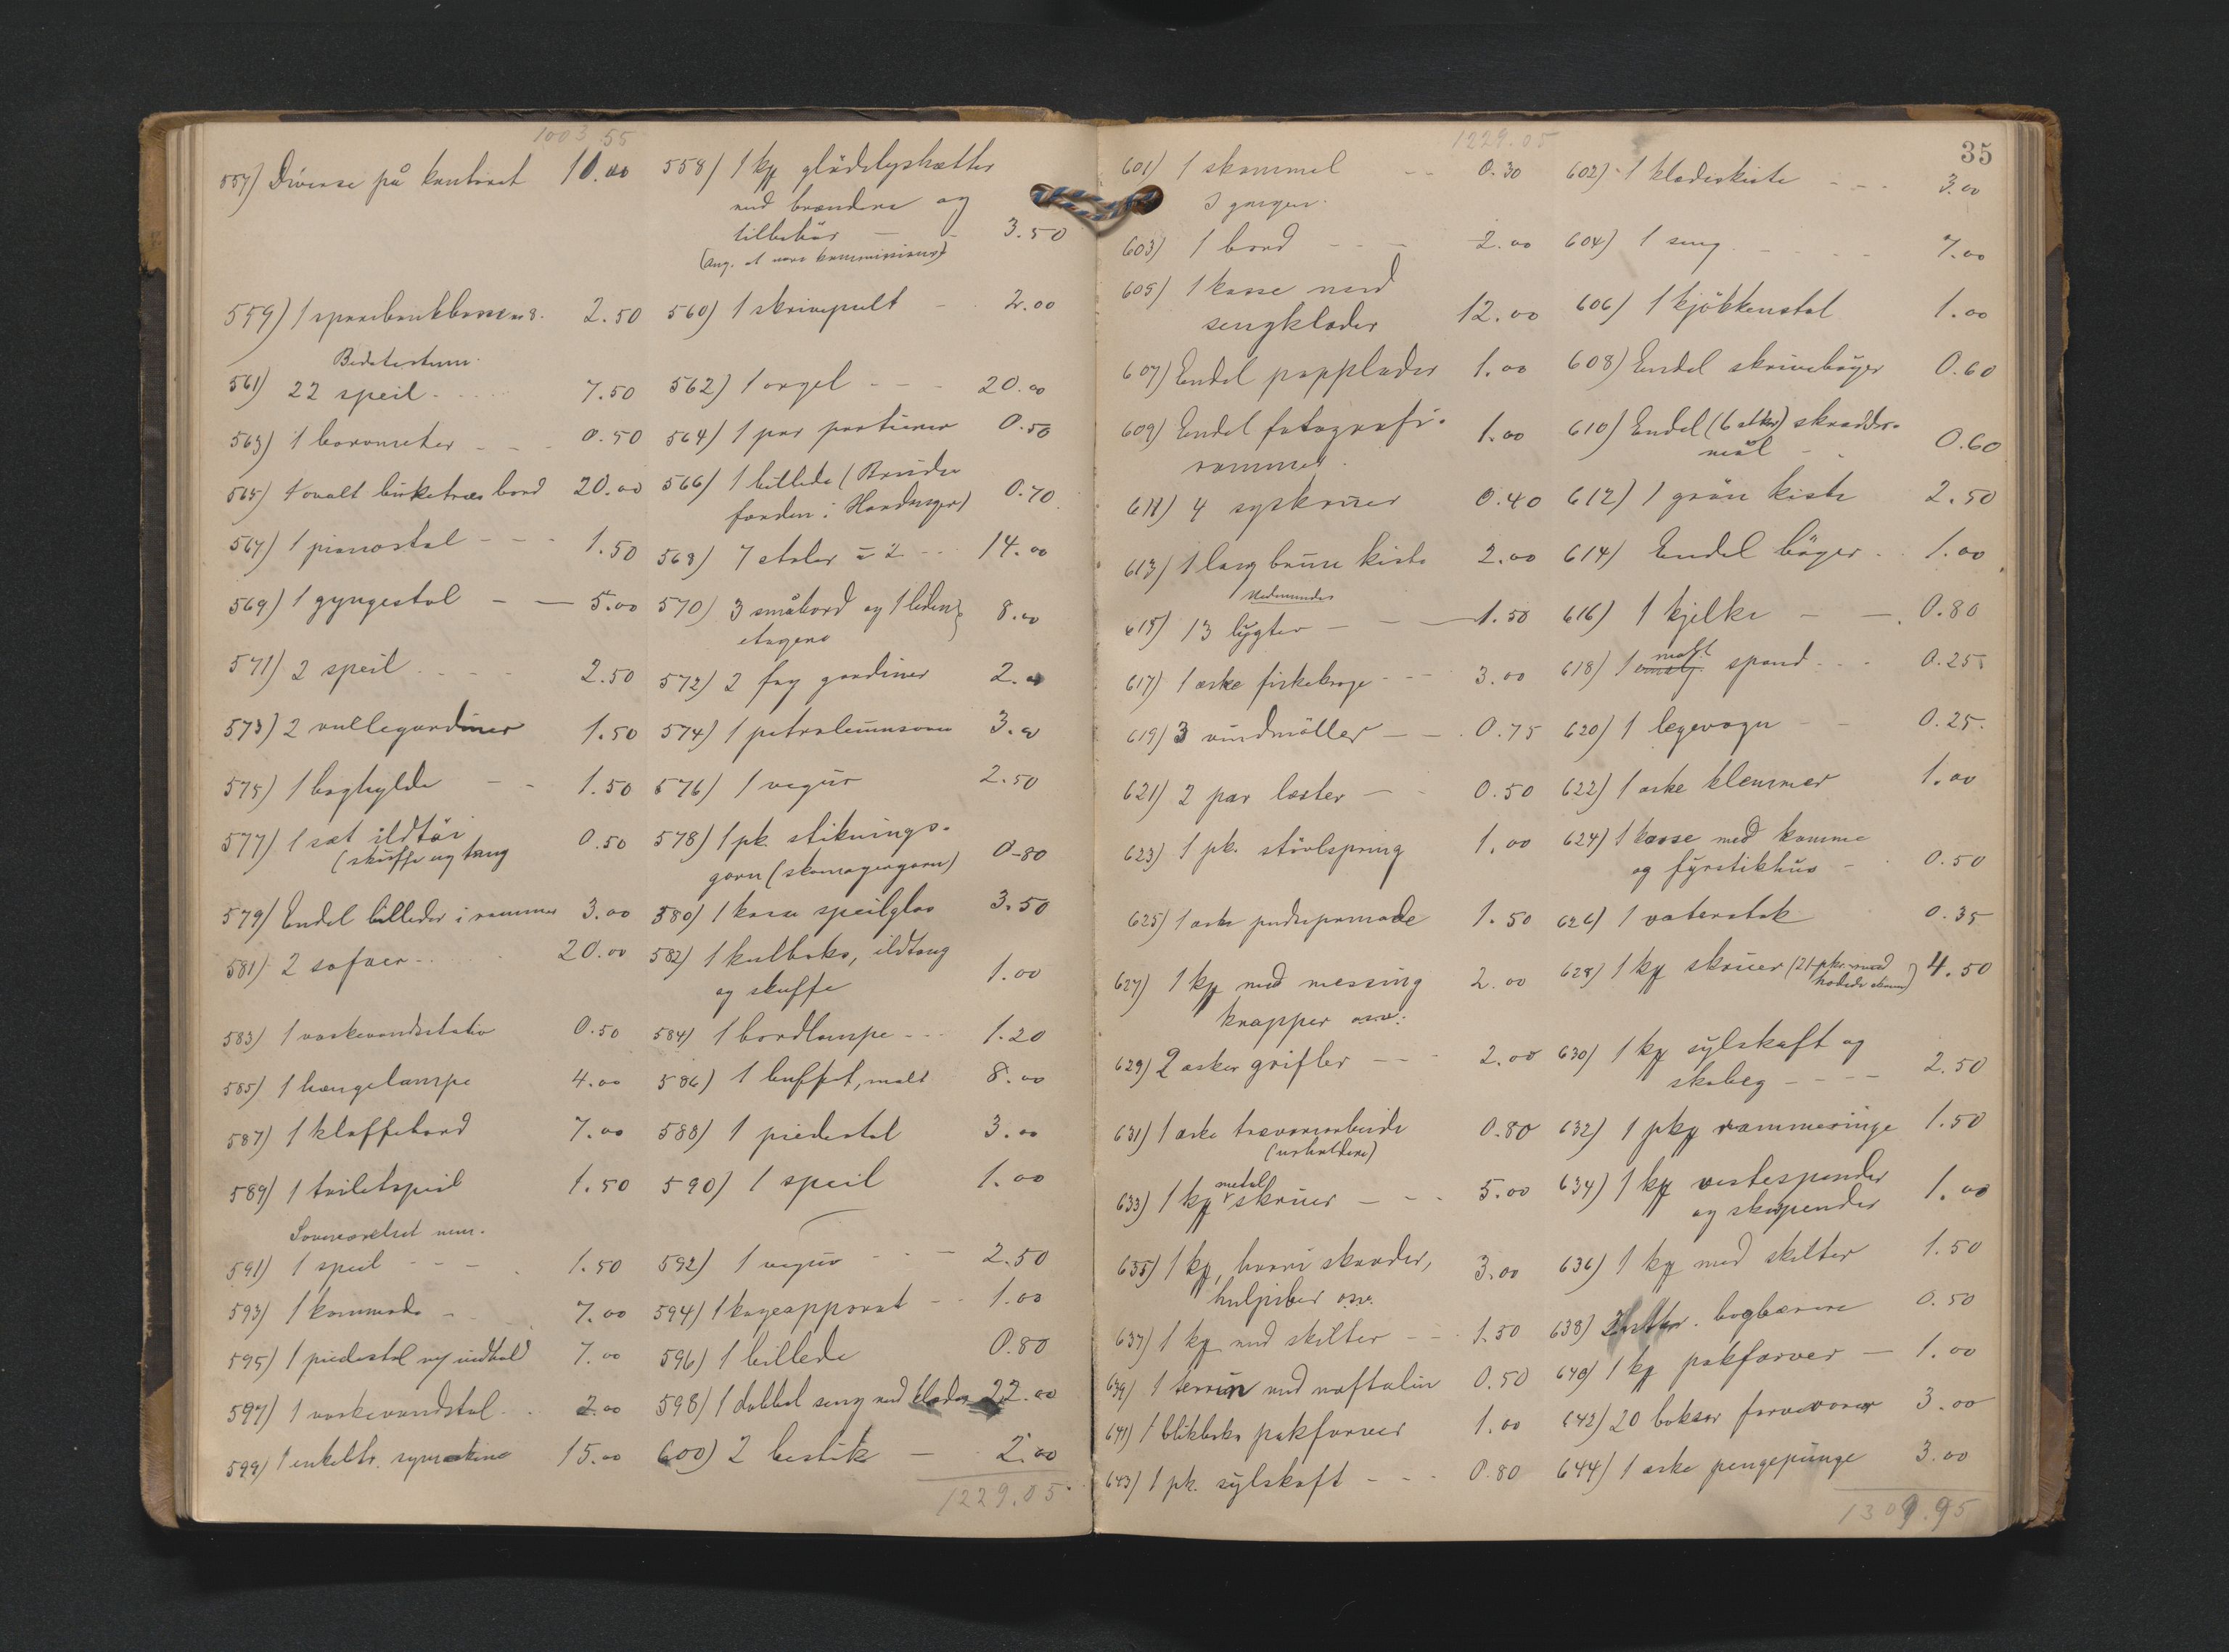 1003 55
557) Diverse på kontoret 10.00 558) 1 kg glödelyshætter
med brændere og
tilbehör — - 3.50
(Ang. at være kommissions)
559) 1 sparebankbösse 2.50 560) 1 skrivepult - 2.00
Bedstestuen.
561) 22 speil - 7.50 562) 1 orgel - - - 20.00
563) 1 barometer - - 0.50 564) 1 par portierer 0.50
565) 1 ovalt birketræs bord 20.00 566) 1 billede (Brude
færden i Hardanger) 0.70
567) 1 pianostol - - - 1.50 568) 7 stoler à 2 - - 14.00
569) 1 gyngestol - — 5.00 570) 3 småbord og 1 liden
etagere 8.00
571) 2 speil - - - 2.50 572) 2 fag gardiner 2.00
573) 2 rullegardiner 1.50 574) 1 petroleumsovn 3.00
575) 1 boghylde - - 1.50 576) 1 vægur 2.50
577) 1 sæt ildtöi
(skuffe og tang 0.50 578) 1 pk. stiknings-
garn (skomagergarn) 0-80
579) Endel billeder i rammer 3.00 580) 1 kasse speilglas 3.50
581) 2 sofaer - - 20.00 582) 1 kulboks, ildtang
og skuffe 1.00
583) 1 vaskevandsstativ 0.50 584) 1 bordlampe - - 1.20
585) 1 hængelampe 4.00 586) 1 buffet, malt 8.00
587) 1 klaffebord 7.00 588) 1 piedestal 3.00
589) 1 toiletspeil 1.50 590) 1 speil 1.00
Soveværelset nem.
591) 1 speil - - - 1.50 592) 1 vegur - - — 2.50
593) 1 kommode - 7.00 594) 1 kogeapparat - - 1.00
595) 1 piedestal m/ indhold 7.00 596) 1 billede 0.80
597) 1 vaskevandstol - - 2.00 598) 1 dobbel seng med klæder 22.00
599) 1 enkeltr. symaskine 15.00 600) 2 bestik — - 2.00
1229.05
1229.05
35
601) 1 skammel - - 0.30 602) 1 klædeskiste - - - 3.00
I gangen.
603) 1 bord - - - 2.00 604) 1 seng - - - - 7.00
605) 1 kasse med
sengklæder 12.00 606) 1 kjökkenstol 1.00
607) Endel papplader 1.00 608) Endel skriveböger 0.60
609) Endel fotografi-
rammer. 1.00 610) Endel (6 stkr) skrædder-
mål - - 0.60
611) 4 syskruer 0.40 612) 1 grön kiste 2.50
613) 1 lang brun kiste 2.00 614) Endel böger - 1.00
Nedenunder
615) 13 lygter - - — 1.50 616) 1 kjelke - — 0.80
617) 1 æske fiskekroge - - - 3.00 618) 1 malt spand - - - 0.25
619) 3 vindmöller — - 0.75 620) 1 legevogn - - 0.25.
621) 2 par læster - - 0.50 622) 1 æske klemmer 1.00
623) 1 pk. stövlspring 1.00 624) 1 kasse med kamme
og fyrstikhus - 0.50
625) 1 æske pudsepomade 1.50 626) 1 vaterstok 0.35
627) 1 kg med messing
knapper osv. 2.00 628) 1 kg skruer (21 pkr. med
hodede skruer) 4.50
629) 2 æsker grifler - - - 2.00 630) 1 kg sylskaft og
skobeg - - - - 2.50
631) 1 æske trævarearbeide
(urholdere) 0.80 632) 1 pkg rammeringe 1.50
633) 1 kg metal skruer - - - 5.00 634) 1 kg vestespender
og skospender 1.00
635) 1 kg, hvori skovder,
hulpiber osv. 3.00 636) 1 kg med skilter 1.50
637) 1 kg med skilter - - 1.50 638) bogbærere 0.50
639) 1 terrin med naftalin 0.50 640) 1 kg pakfarver — 1.00
641) 1 blikboks pakfarver 1.00 642) 20 bokser farvevarer 3.00
643) 1 pk. sylskaft - - - 0.80 644) 1 æske pengepunge 3.00
1309.95